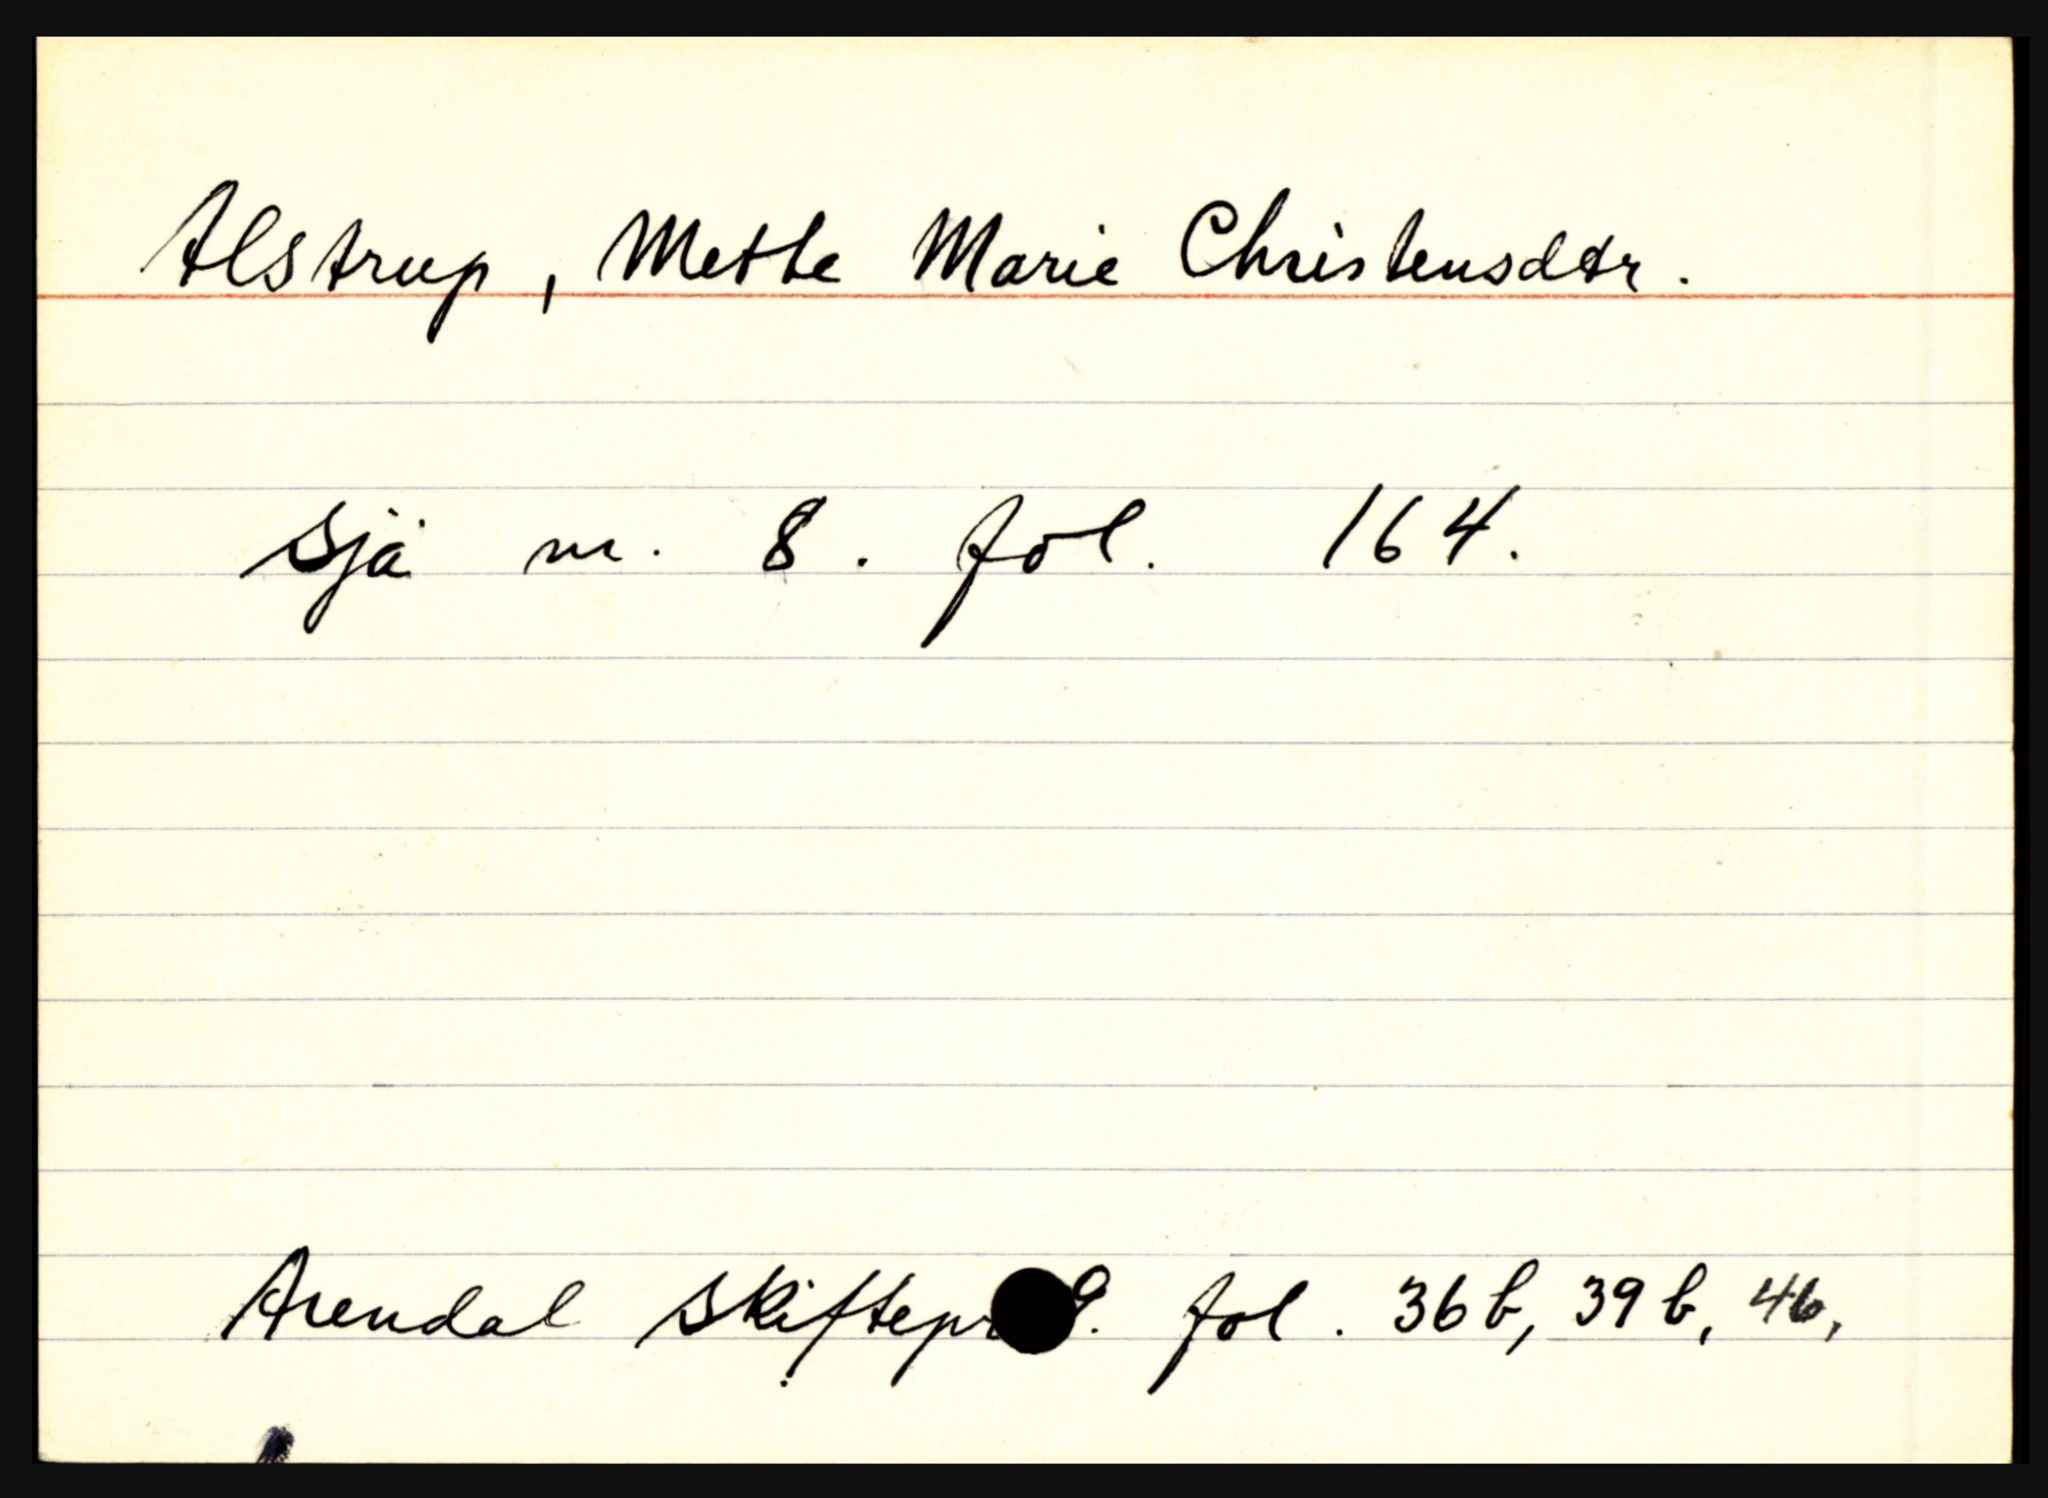 Alstrup, Mette Marie Christensdtr.
Sjå nr. 8. fol. 164.
Arendal Skiftepr 9. fol. 36b, 39b, 46,